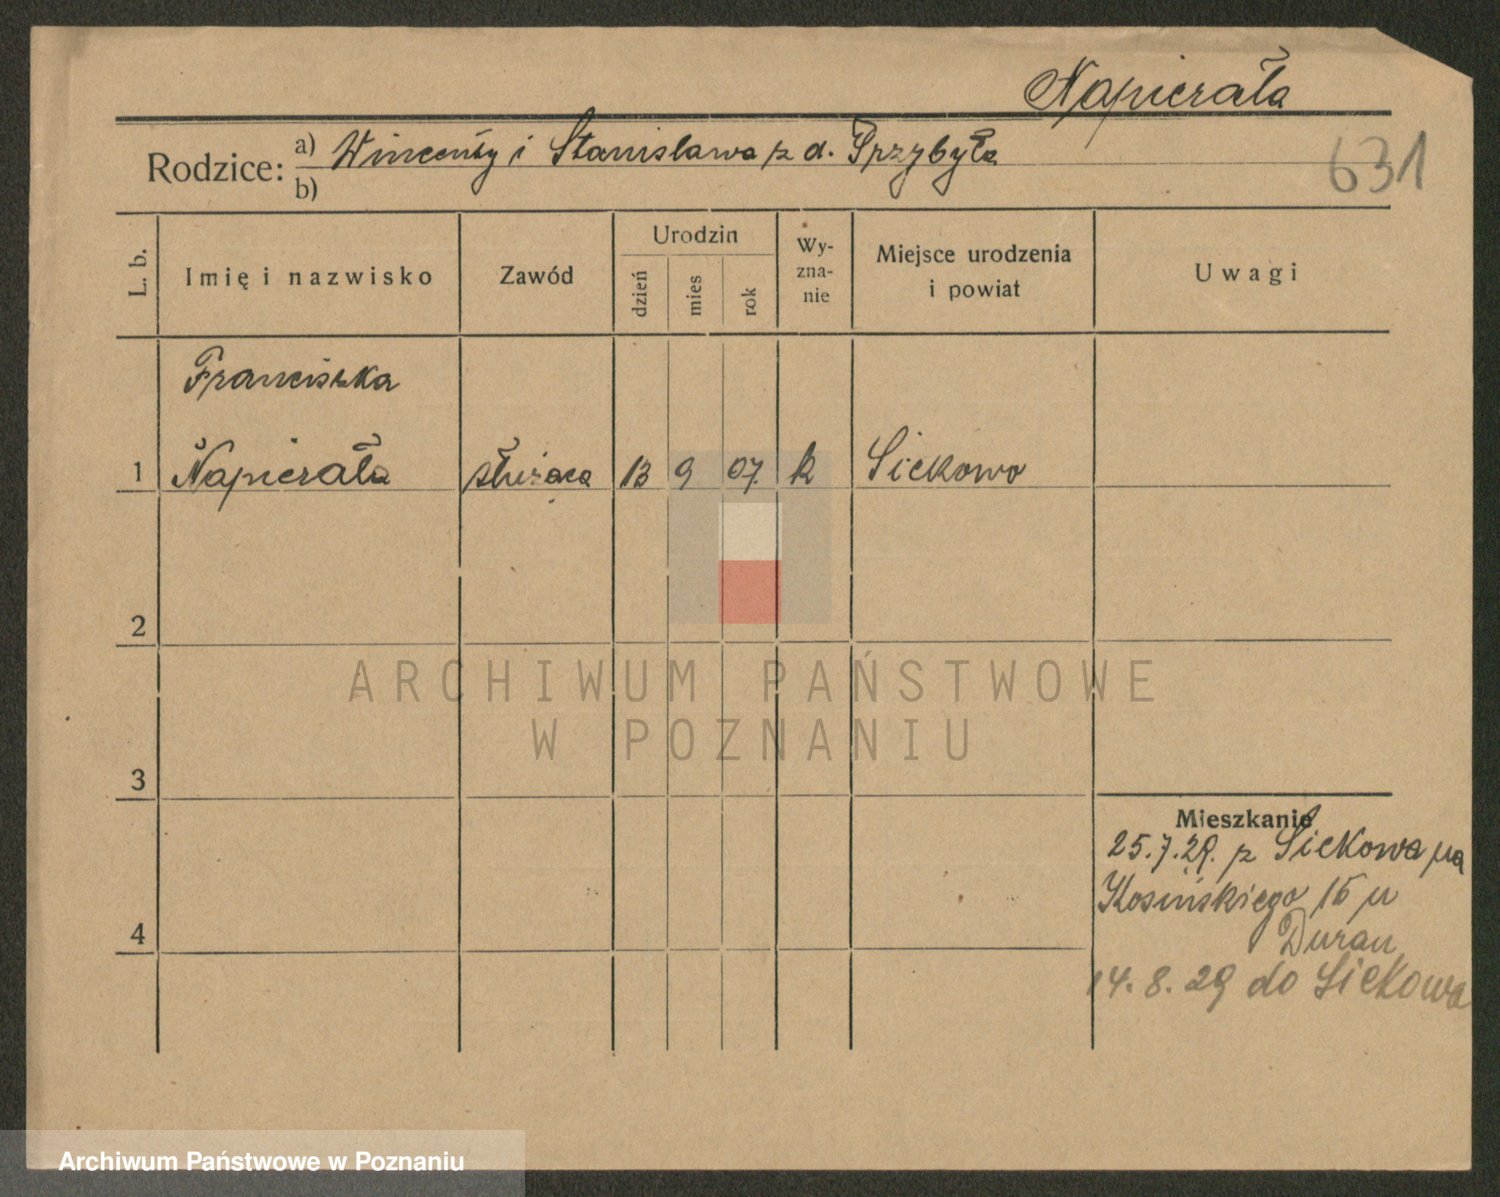 Napierała
Rodzice: a) Wincenty i Stanisława z d. Przybyła
b)
631
L. b.
Imię i nazwisko
Zawód
Urodzin
dzień
mies
rok
Wy-
zna-
nie
Miejsce urodzenia
i powiat
Uwagi
Franciszka
1 Napierała służąca 13 9 07. k Siekowo
2
ARCHIWUM PAŃSTWOWE
W POZNANIU
3
Mieszkanie
25.7.29. z Siekowa na
Kosińskiego 15 u
4
Duran
14.8.29 do Siekowa
Archiwum Państwowe w Poznaniu